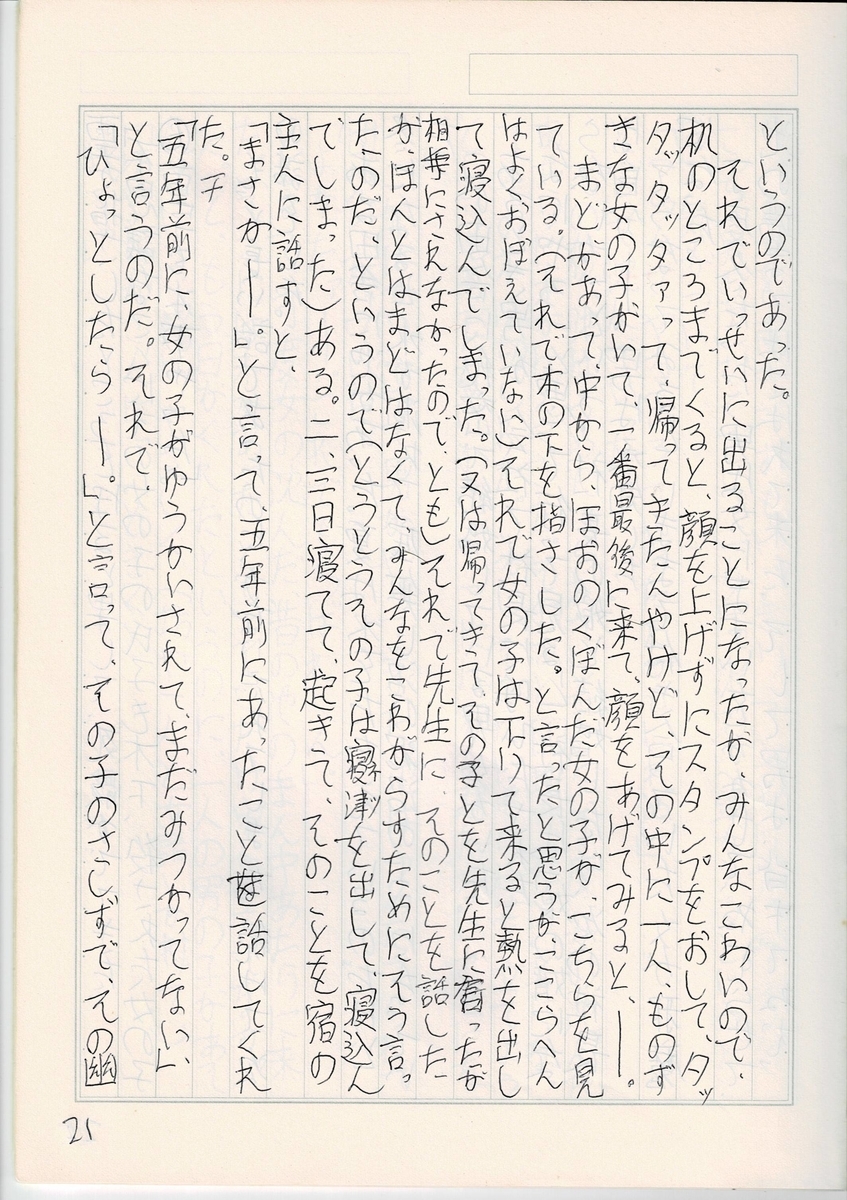 というのであった。
それでいっせいに出ることになったが、みんなこわいので、
机のところまでくると、顔を上げずにスタンプをおして、タッ
タッタッタァって、帰ってきたんやけど、その中に一人、ものず
きな女の子がいて、一番最後に来て、顔をあげてみると、――。
まどがあって、中から、ほおのくぼんだ女の子が、こちらを見
ている。(それで木の下を指さした。と言ったと思うが、ここらへん
はよくおぼえていない)それで女の子は下りて来ると熱を出し
て寝込んでしまった。(又は帰ってきて、その子とを先生に言ったが
相手にされなかったので、とも)それで先生に、そのことを話した
が、ほんとはまどはなくて、みんなをこわがらすためにそう言っ
たのだ、というので(とうとうその子は寝ネツを出して、寝込ん
でしまった)ある。二、三日寝てて、起きて、そのことを宿の
主人に話すと、
「まさか――」。と言って、五年前にあったことを話してくれ
た。
「五年前に、女の子がゆうかいされて、まだみつかってない」、
と言うのだ。それで、
「ひょっとしたら――。」と言って、その子のさしずで、その幽
21